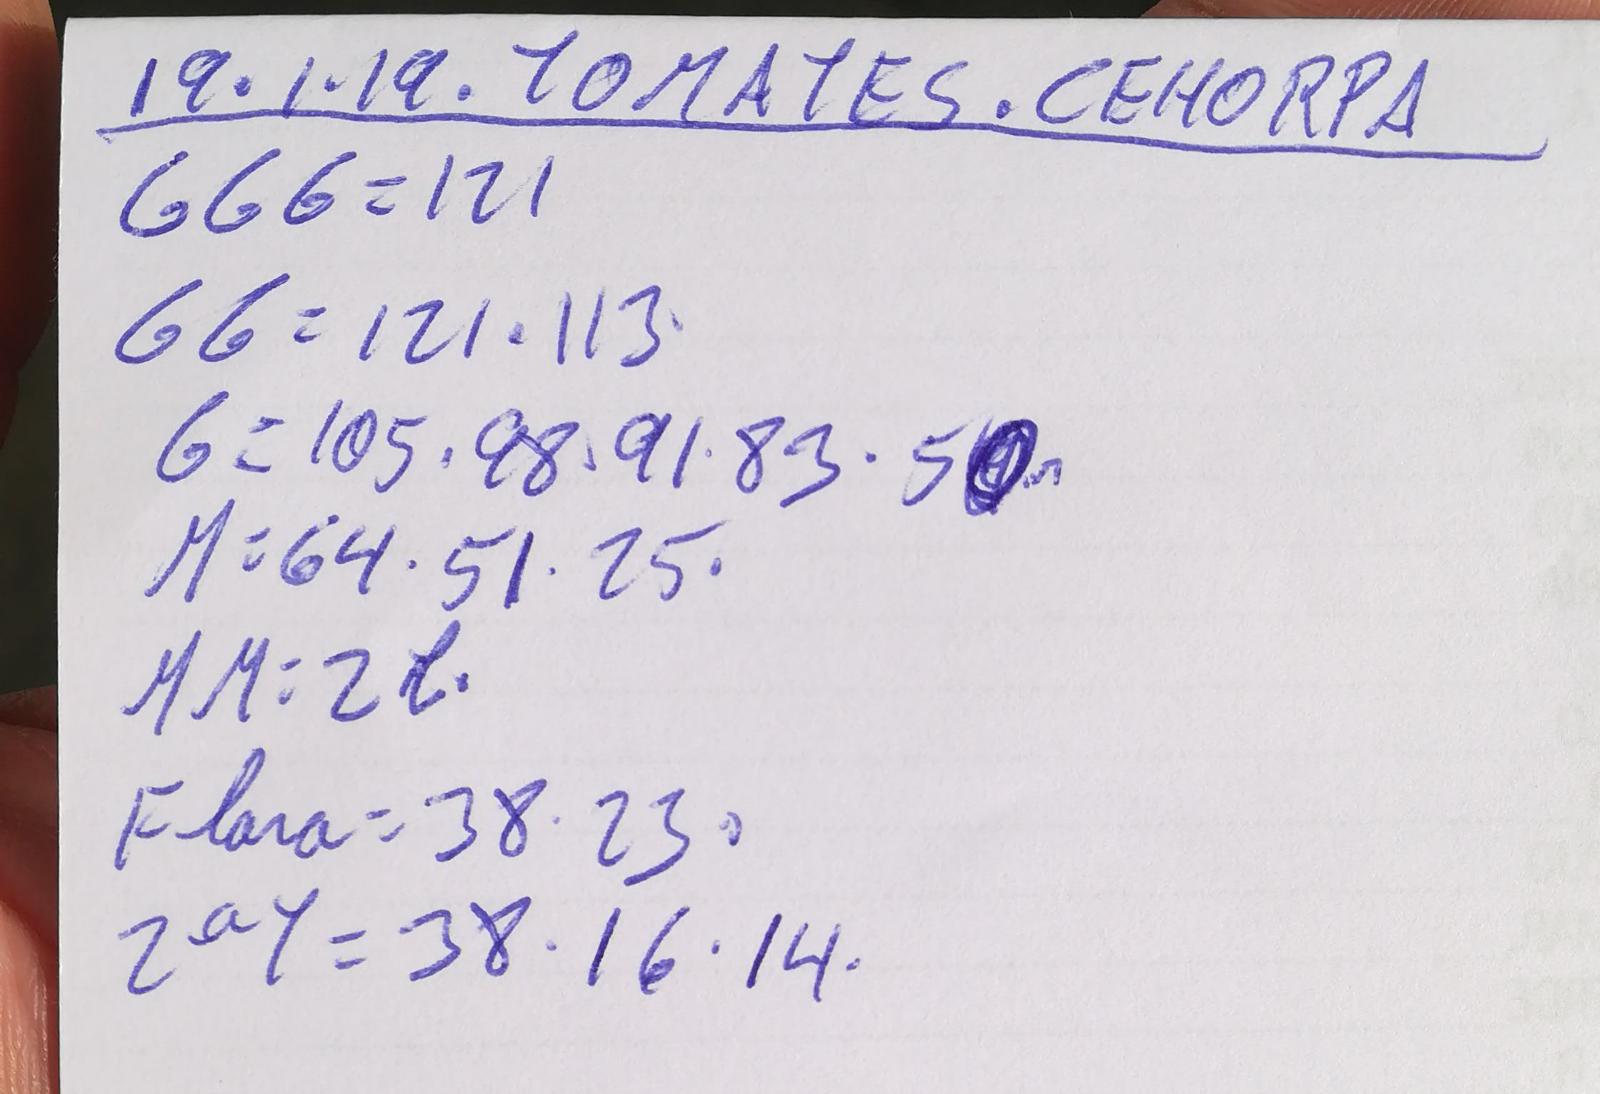 19.1.19. TOMATES. CEHORPA
GGG=121
GG=121.113.
G=105.98.91.83.50.
M=64.51.25.
MM=21.
F lara=38.23.
2ªT=38.16.14.